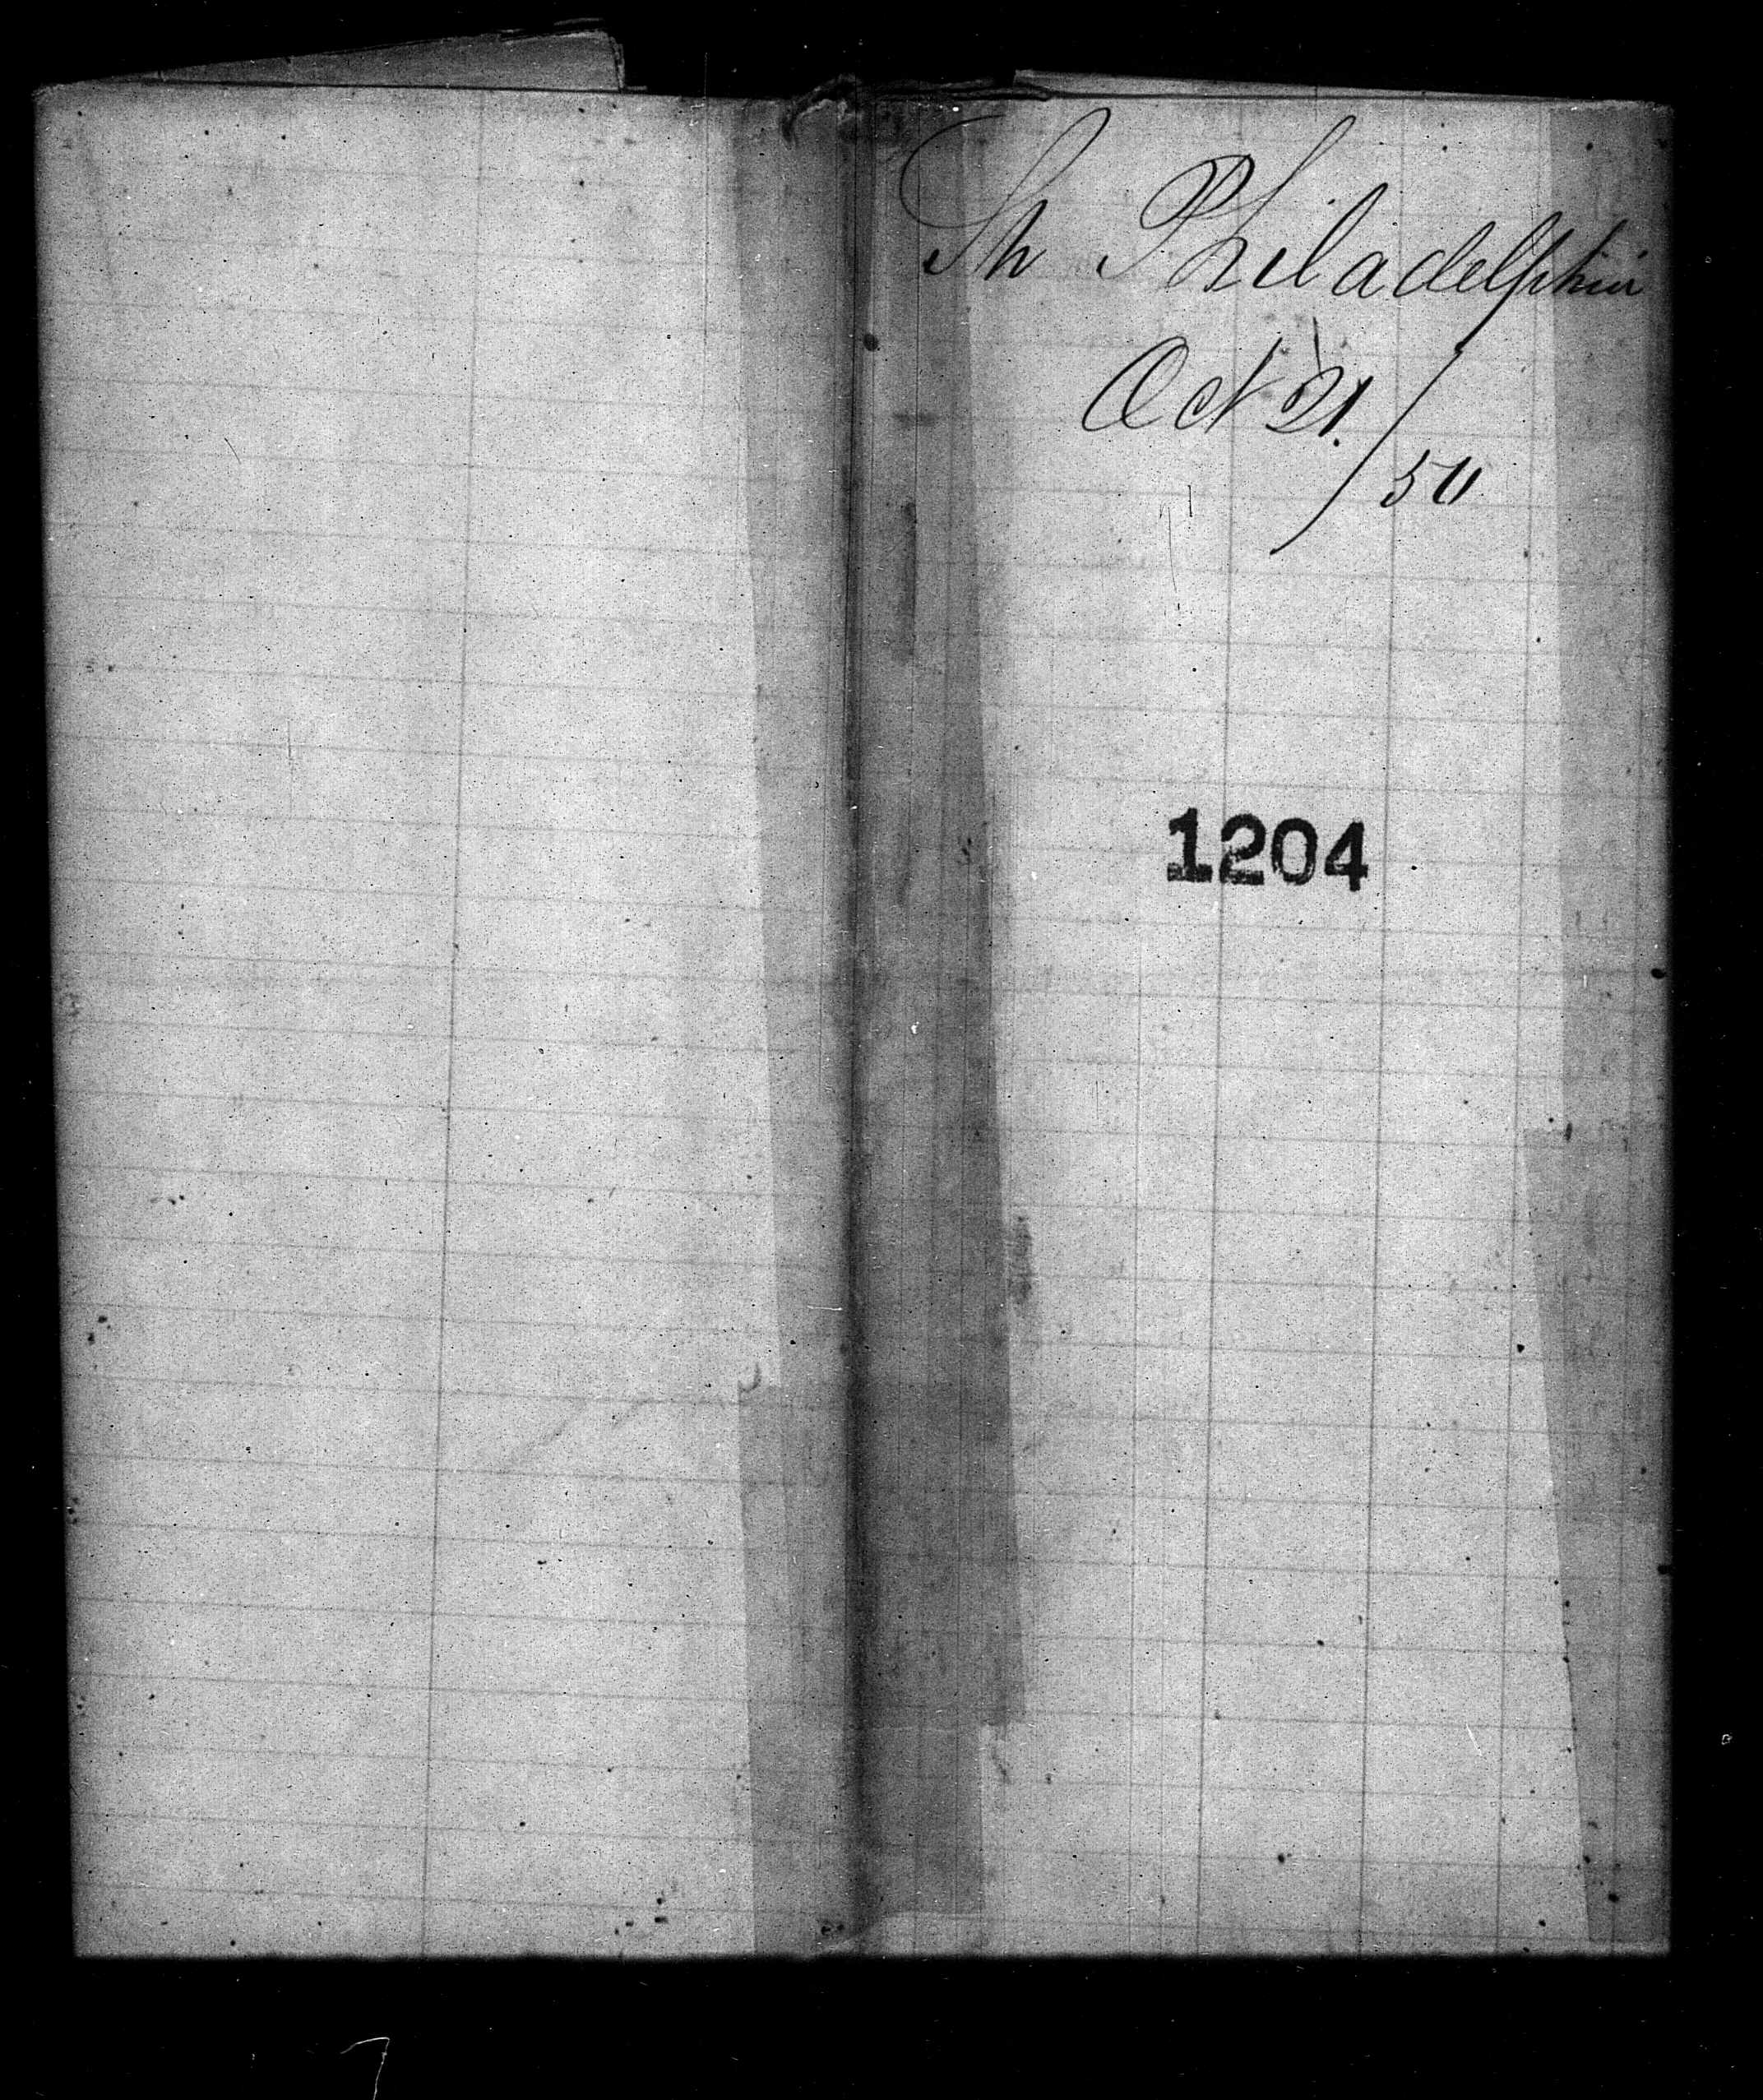 Sh Philadelphia
Oct 21./50
1204